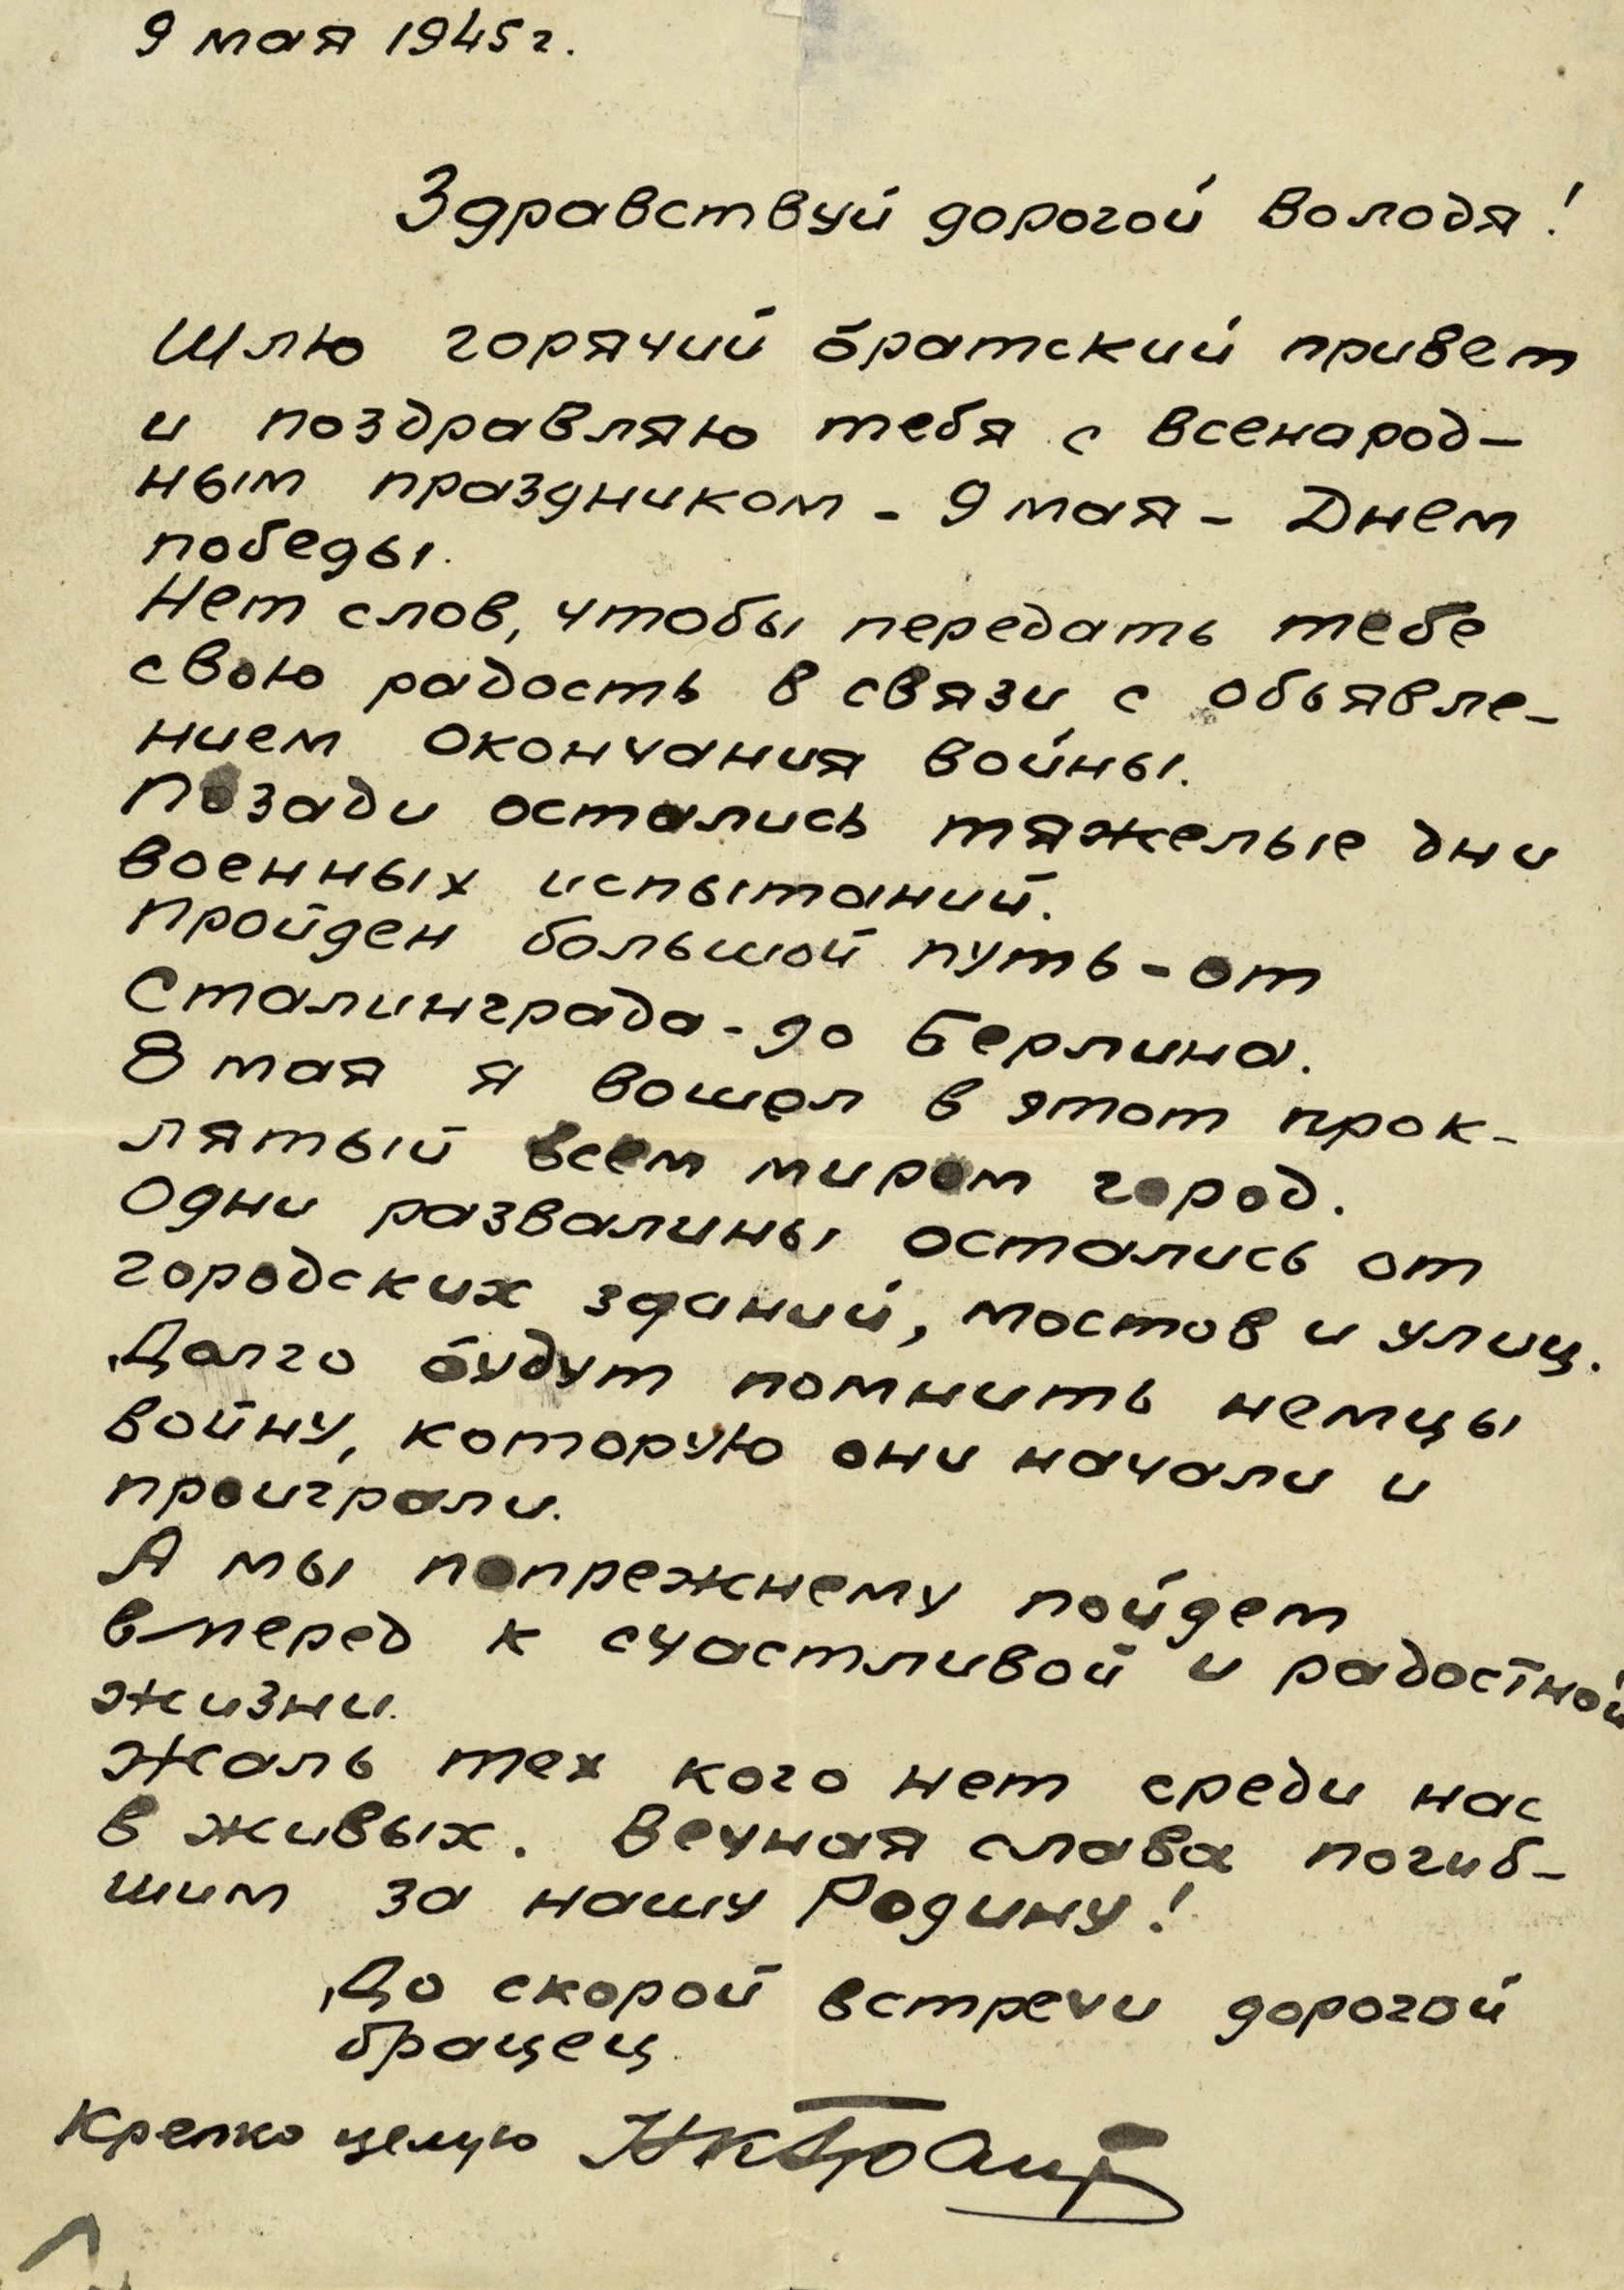 9 мая 1945 г.
Здравствуй дорогой Володя!
Шлю горячий братский привет
и поздравляю тебя с всенарод-
ным праздником - 9 мая - Днем
победы.
Нет слов, чтобы передать тебе
свою радость в связи с объявле-
нием окончания войны.
Позади остались тяжелые дни
военных испытаний.
Пройден большой путь - от
Сталинграда - до Берлина.
8 мая я вошел в этот прок-
лятый всем миром город.
Одни развалины остались от
городских зданий, мостов и улиц.
Долго будут помнить немцы
войну, которую они начали и
проиграли.
А мы попрежнему пойдем
вперед к счастливой и радостной
жизни.
Жаль тех кого нет среди нас
в живых. Вечная слава погиб-
шим за нашу Родину!
До скорой встречи дорогой
братец.
Крепко целую